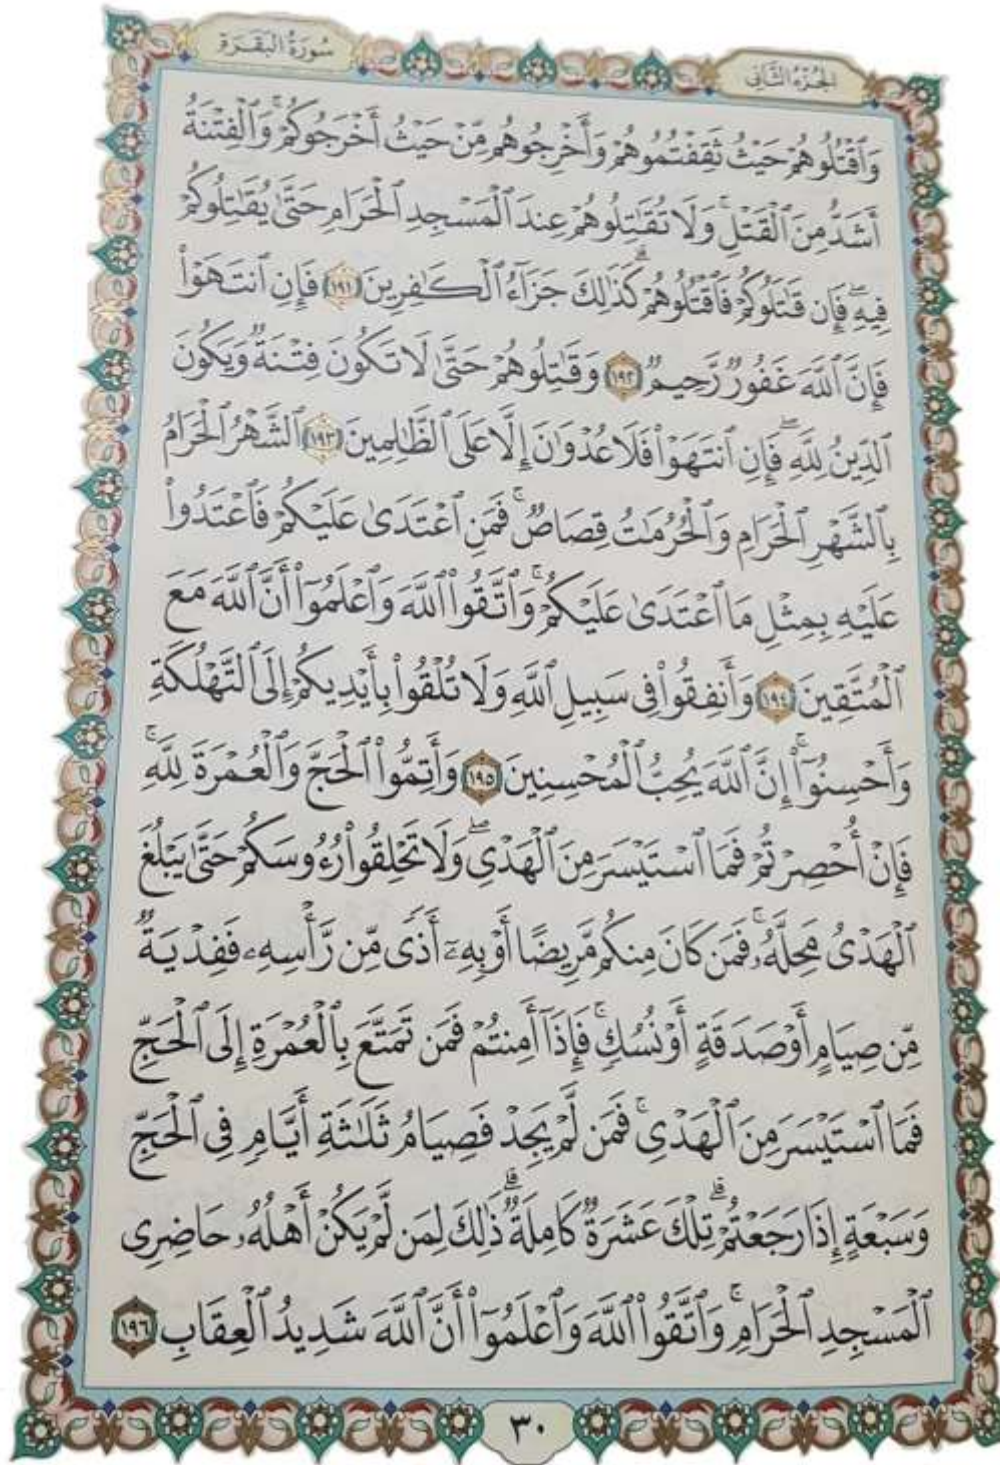 سُورَةُ البَقَرَةِ
الجُزْءُ الثَّانِي
وَٱقْتُلُوهُمْ حَيْثُ ثَقِفْتُمُوهُمْ وَأَخْرِجُوهُم مِّنْ حَيْثُ أَخْرَجُوكُمْ ۚ وَٱلْفِتْنَةُ
أَشَدُّ مِنَ ٱلْقَتْلِ ۚ وَلَا تُقَٰتِلُوهُمْ عِندَ ٱلْمَسْجِدِ ٱلْحَرَامِ حَتَّىٰ يُقَٰتِلُوكُمْ
فِيهِ ۖ فَإِن قَٰتَلُوكُمْ فَٱقْتُلُوهُمْ ۗ كَذَٰلِكَ جَزَآءُ ٱلْكَٰفِرِينَ ١٩١ فَإِنِ ٱنتَهَوْا۟
فَإِنَّ ٱللَّهَ غَفُورٌ رَّحِيمٌ ١٩٢ وَقَٰتِلُوهُمْ حَتَّىٰ لَا تَكُونَ فِتْنَةٌ وَيَكُونَ
ٱلدِّينُ لِلَّهِ ۖ فَإِنِ ٱنتَهَوْا۟ فَلَا عُدْوَٰنَ إِلَّا عَلَى ٱلظَّٰلِمِينَ ١٩٣ ٱلشَّهْرُ ٱلْحَرَامُ
بِٱلشَّهْرِ ٱلْحَرَامِ وَٱلْحُرُمَٰتُ قِصَاصٌ ۚ فَمَنِ ٱعْتَدَىٰ عَلَيْكُمْ فَٱعْتَدُوا۟
عَلَيْهِ بِمِثْلِ مَا ٱعْتَدَىٰ عَلَيْكُمْ ۚ وَٱتَّقُوا۟ ٱللَّهَ وَٱعْلَمُوٓا۟ أَنَّ ٱللَّهَ مَعَ
ٱلْمُتَّقِينَ ١٩٤ وَأَنفِقُوا۟ فِى سَبِيلِ ٱللَّهِ وَلَا تُلْقُوا۟ بِأَيْدِيكُمْ إِلَى ٱلتَّهْلُكَةِ
وَأَحْسِنُوٓا۟ ۛ إِنَّ ٱللَّهَ يُحِبُّ ٱلْمُحْسِنِينَ ١٩٥ وَأَتِمُّوا۟ ٱلْحَجَّ وَٱلْعُمْرَةَ لِلَّهِ ۚ
فَإِنْ أُحْصِرْتُمْ فَمَا ٱسْتَيْسَرَ مِنَ ٱلْهَدْىِ ۖ وَلَا تَحْلِقُوا۟ رُءُوسَكُمْ حَتَّىٰ يَبْلُغَ
ٱلْهَدْىُ مَحِلَّهُۥ ۚ فَمَن كَانَ مِنكُم مَّرِيضًا أَوْ بِهِۦٓ أَذًى مِّن رَّأْسِهِۦ فَفِدْيَةٌ
مِّن صِيَامٍ أَوْ صَدَقَةٍ أَوْ نُسُكٍ ۚ فَإِذَآ أَمِنتُمْ فَمَن تَمَتَّعَ بِٱلْعُمْرَةِ إِلَى ٱلْحَجِّ
فَمَا ٱسْتَيْسَرَ مِنَ ٱلْهَدْىِ ۚ فَمَن لَّمْ يَجِدْ فَصِيَامُ ثَلَٰثَةِ أَيَّامٍ فِى ٱلْحَجِّ
وَسَبْعَةٍ إِذَا رَجَعْتُمْ ۗ تِلْكَ عَشَرَةٌ كَامِلَةٌ ۗ ذَٰلِكَ لِمَن لَّمْ يَكُنْ أَهْلُهُۥ حَاضِرِى
ٱلْمَسْجِدِ ٱلْحَرَامِ ۚ وَٱتَّقُوا۟ ٱللَّهَ وَٱعْلَمُوٓا۟ أَنَّ ٱللَّهَ شَدِيدُ ٱلْعِقَابِ ١٩٦
٣٠